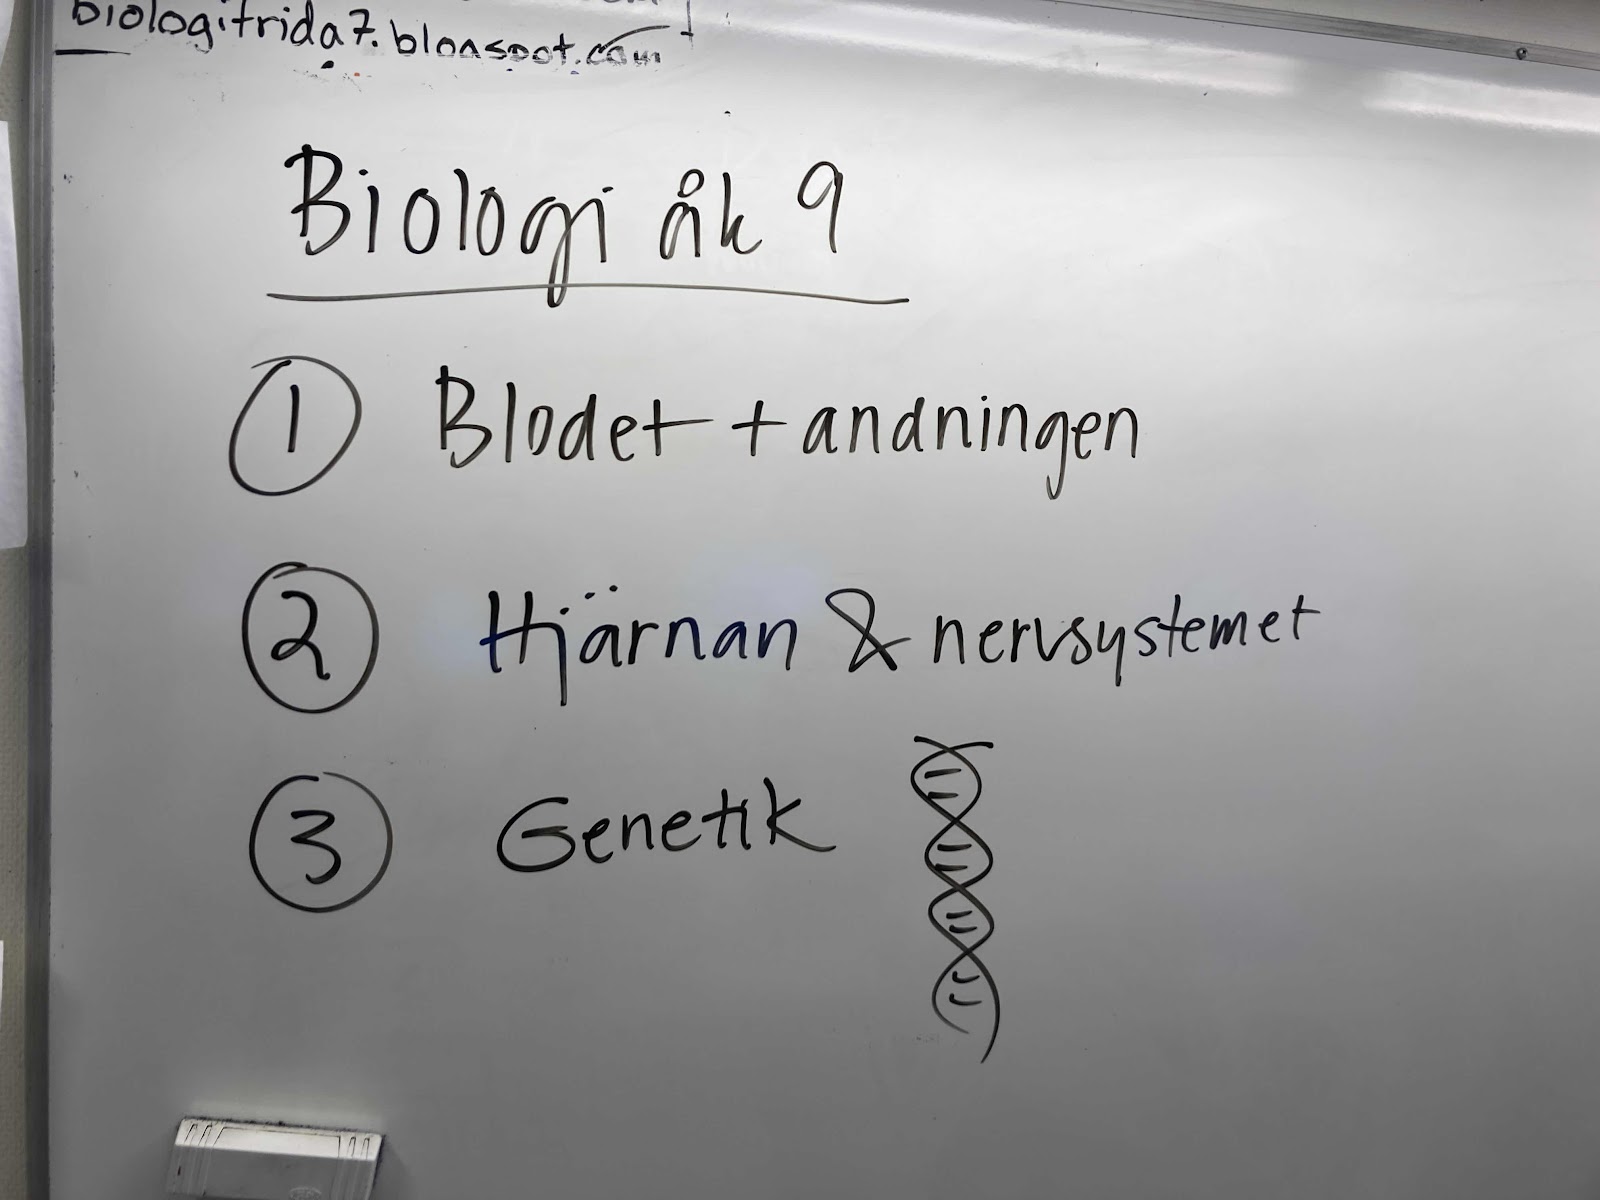 biologifrida7.blogspot.com
Biologi åk 9
1 Blodet + andningen
2 Hjärnan & nervsystemet
3 Genetik